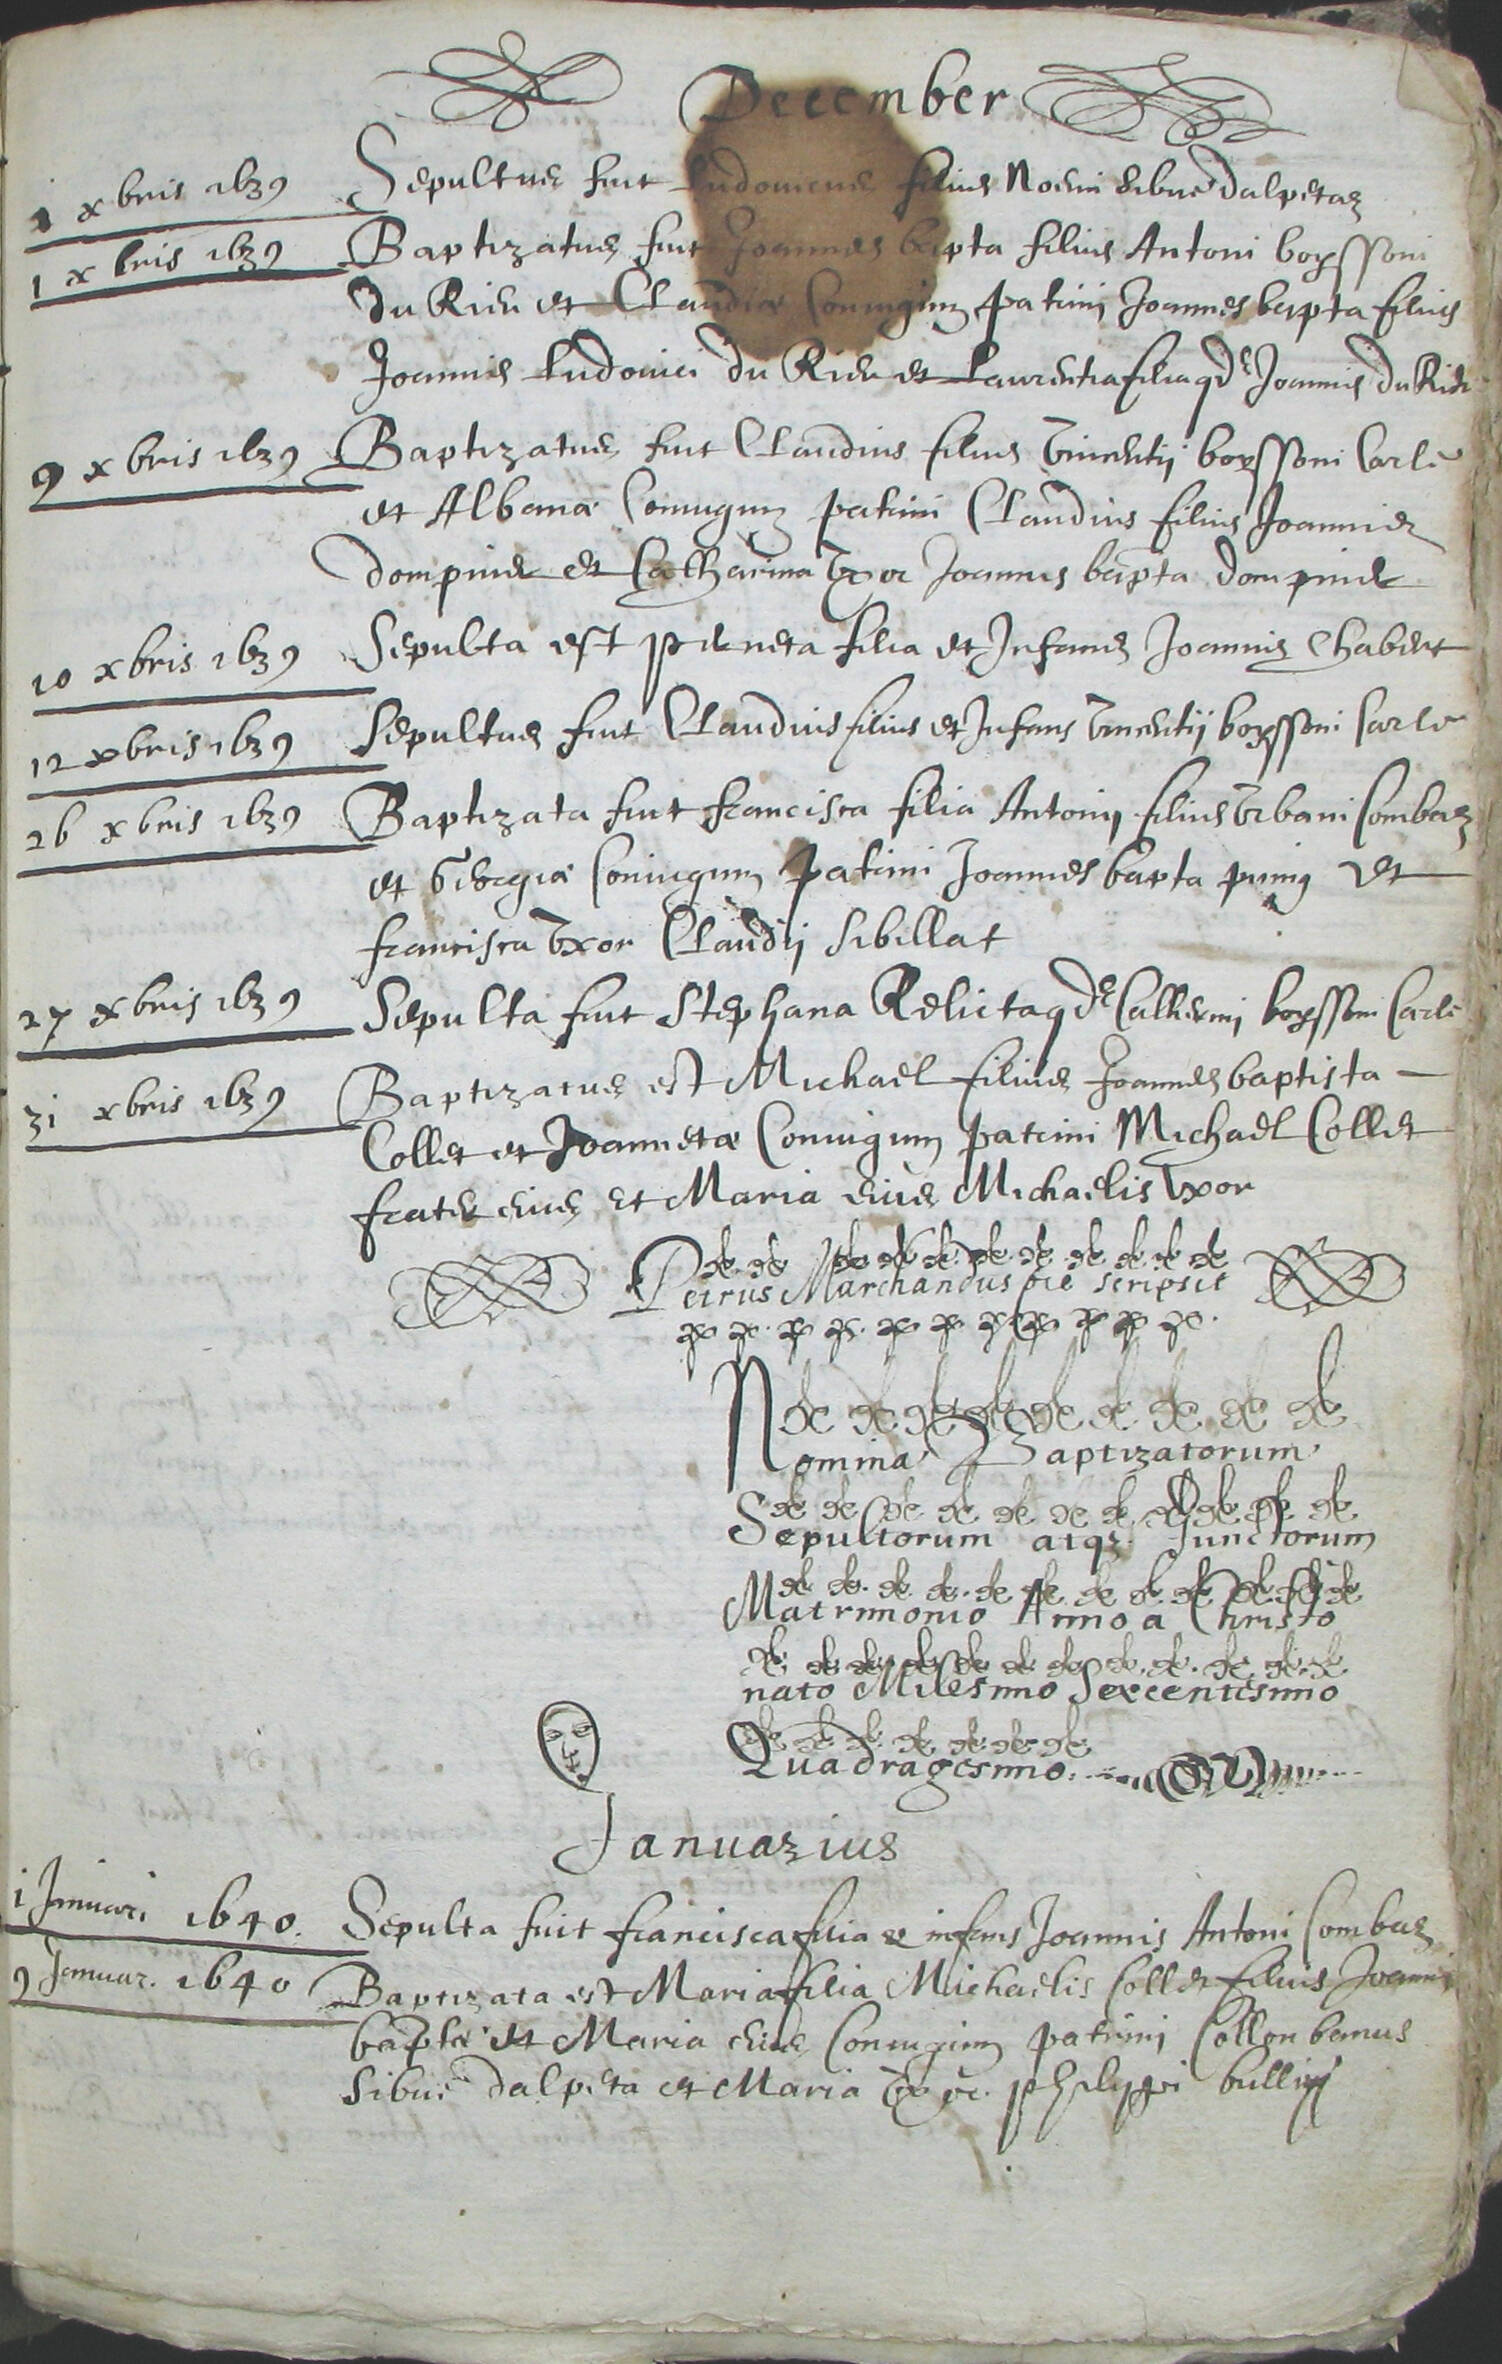 December
1 xbris 1639 Sepultus fuit Ludovicus filius Noeni Sibue dalpetaz
1 xbris 1639 Baptizatus fuit Joannes bapta filius Antoni boyssoni
du Rieu et Claudiæ Coniugum patrini Joannes bapta filius
Joannis Ludovici du Rieu et Laurentia filia qde Joannis du Rieu
9 xbris 1639 Baptizatus fuit Claudius filius Vincentij boyssoni Carle
et Albanæ Coniugum patrini Claudius filius Joannis
dompnier et Catharina Vxor Joannes bapta dompnier
10 xbris 1639 Sepulta est perneta filia et Infans Joannis Chabert
12 xbris 1639 Sepultus fuit Claudius filius et Infans Vincentij boyssoni Carle
26 xbris 1639 Baptizata fuit francisca filia Antonij filius Vrbani Combaz
et Georgiæ Coniugum patrini Joannes bapta et
francisca Vxor Claudij Sibillat
27 xbris 1639 Sepulta fuit Stephana Relicta qde Catherini boyssoni Carle
31 xbris 1639 Baptizatus est Michael filius Joannes baptista
Collet et Joannetæ Coniugum patrini Michael Collet
frater eius et Maria eius Michaelis Vxor
Petrus Marchandus sic scripsit
Nomina Baptizatorum
Sepultorum atqz Junctorum
Matrimonio Anno a Christo
nato Milesimo Sexcentesimo
Quadragesimo.
Januarius
1 Januari 1640. Sepulta fuit francisca filia & infans Joannis Antoni Combaz
9 Januar. 1640 Baptizata est Maria filia Michaelis Collet filius Joannis
baptæ et Maria eius Coniugum patrini Collonbanus
Sibue dalpeta et Maria Vxor